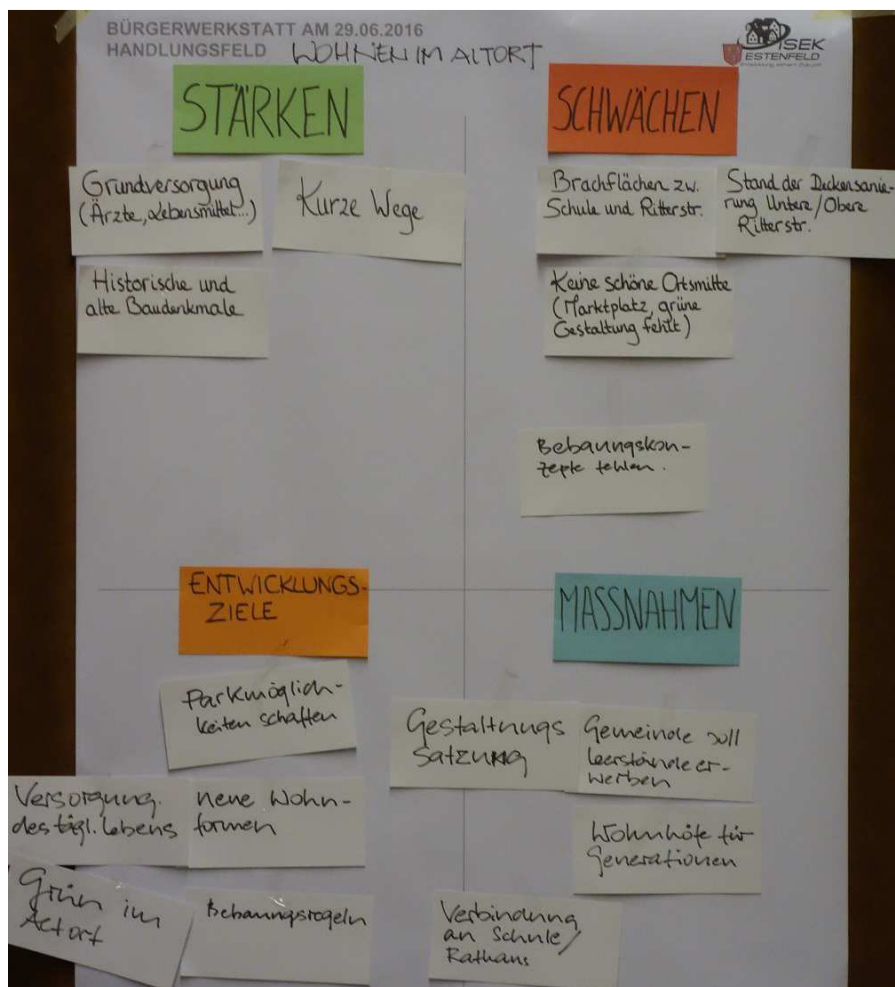 BÜRGERWERKSTATT AM 29.06.2016
HANDLUNGSFELD WOHNEN IM ALTORT
ISEK
ESTENFELD
STÄRKEN
Grundversorgung
(Ärzte, Lebensmittel...)
Kurze Wege
Historische und
alte Baudenkmale
SCHWÄCHEN
Brachflächen zw.
Schule und Ritterstr.
Stand der Deckensanie-
rung Untere/Obere
Ritterstr.
Keine schöne Ortsmitte
(Marktplatz, grüne
Gestaltung fehlt)
Bebauungskon-
zepte fehlen.
ENTWICKLUNGS-
ZIELE
Parkmöglich-
keiten schaffen
Versorgung
des tägl. lebens
neue Wohn-
formen
Grün im
Altort
Bebauungsregeln
MASSNAHMEN
Gestaltungs
Satzung
Gemeinde soll
leerstände er-
werben
Wohnhöfe für
Generationen
Verbindung
an Schule/
Rathaus